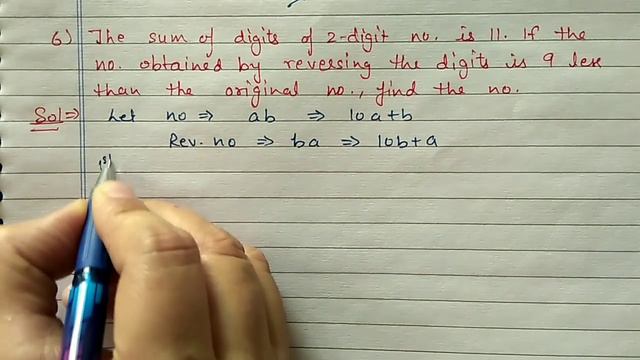 6) The sum of digits of 2-digit no. is 11. If the
no. obtained by reversing the digits is 9 less
than the original no., find the no.
Sol⇒ Let no ⇒ ab ⇒ 10a+b
Rev. no ⇒ ba ⇒ 10b+a